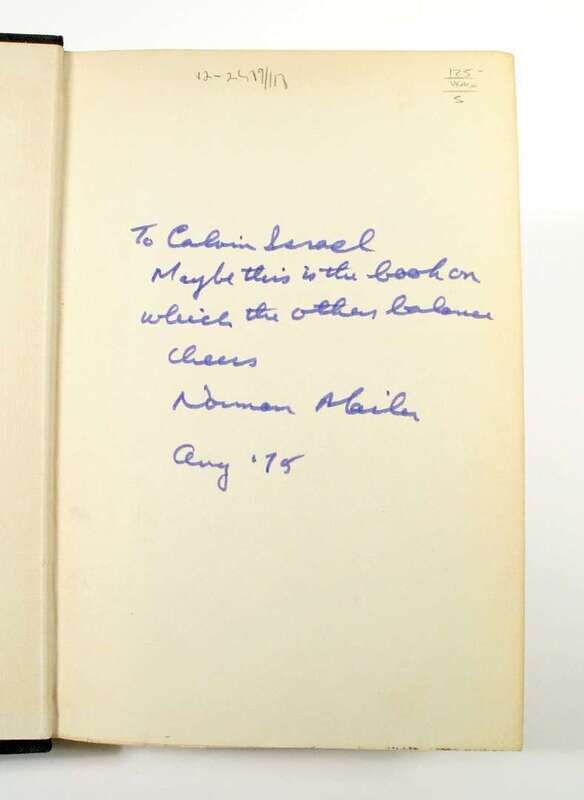 125-
5
To Calvin Israel
Maybe this is the book on
which the others balance
cheers
Norman Mailer
Aug '75